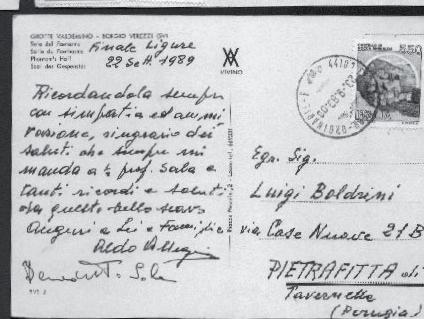 GROTTE VALDEMINO - BORGIO VEREZZI (SV)
Sala del Fantasma
Salle du Fantôme
Phantom's Hall
Saal des Gespenstes
Finale Ligure
22 Sett. 1989
VIVINO
550
Ricordandola sempre
con simpatia ed ammi
razione, ringrazio dei
saluti che sempre mi
manda a ½ prof. Sala e
tanti ricordi e saluti
da questo bello
Auguri a Lei e famiglia
Aldo
Egr. Sig.
Luigi Boldrini
via Case Nuove 21B
PIETRAFITTA di
Tavernelle
(Perugia)